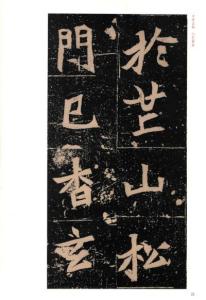 於芒山松
門已杳玄